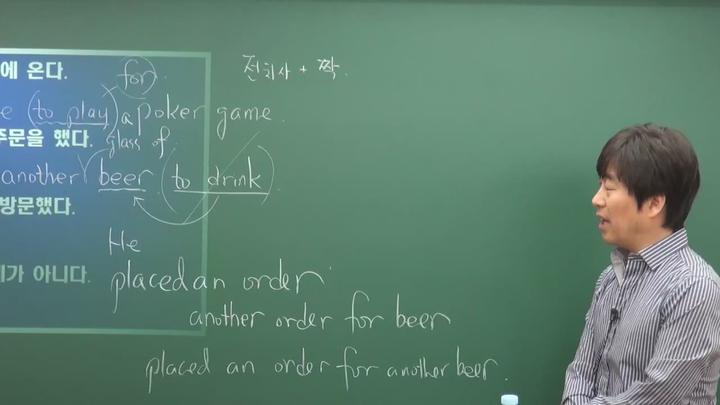 에 온다.
for
전치사 + 짝.
e (to play) a poker game.
주문을 했다. glass of
another beer (to drink).
방문했다.
He
가 아니다. placed an order
another order for beer
placed an order for another beer.